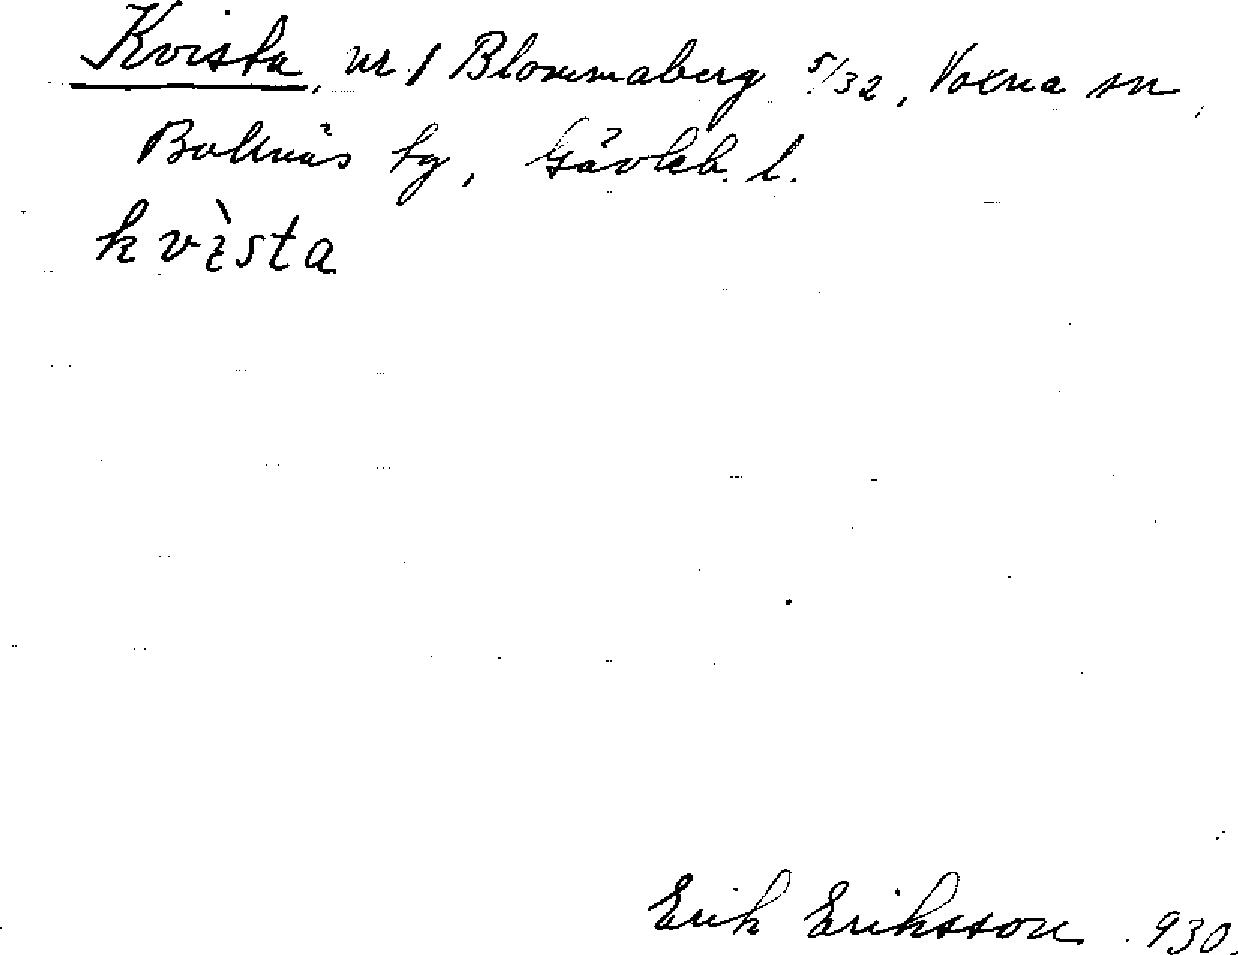 Kvista, nr 1 Blommaberg 5/32, Voxna sn,
Bollnäs tg, Gävleb. l.
kvìsta
Erik Eriksson. 930.